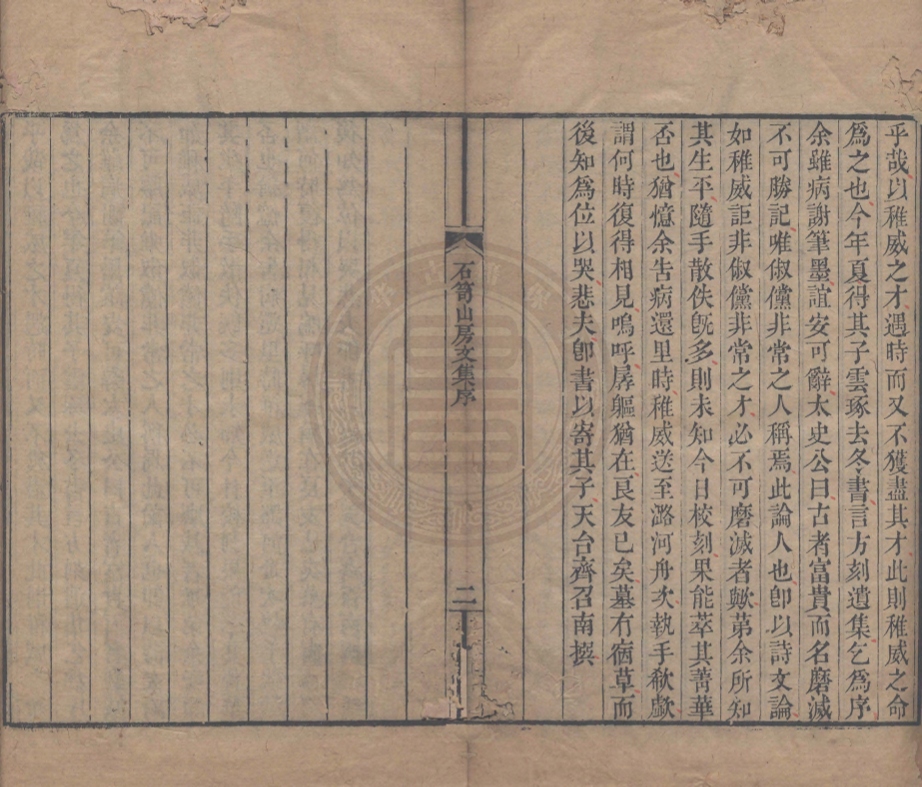 乎哉以稚威之才遇時而又不獲盡其才此則稚威之命
爲之也今年夏得其子雲琢去冬書言方刻遺集乞爲序
余雖病謝筆墨誼安可辭太史公曰古者富貴而名磨滅
不可勝記唯俶儻非常之人稱焉此論人也卽以詩文論
如稚威詎非俶儻非常之才必不可磨滅者歟第余所知
其生平隨手散佚旣多則未知今日校刻果能萃其菁華
否也猶憶余告病還里時稚威送至潞河舟次執手欷歔
謂何時復得相見嗚呼孱軀猶在良友已矣墓有宿草而
後知爲位以哭悲夫卽書以寄其子天台齊召南撰
石笥山房文集序
二